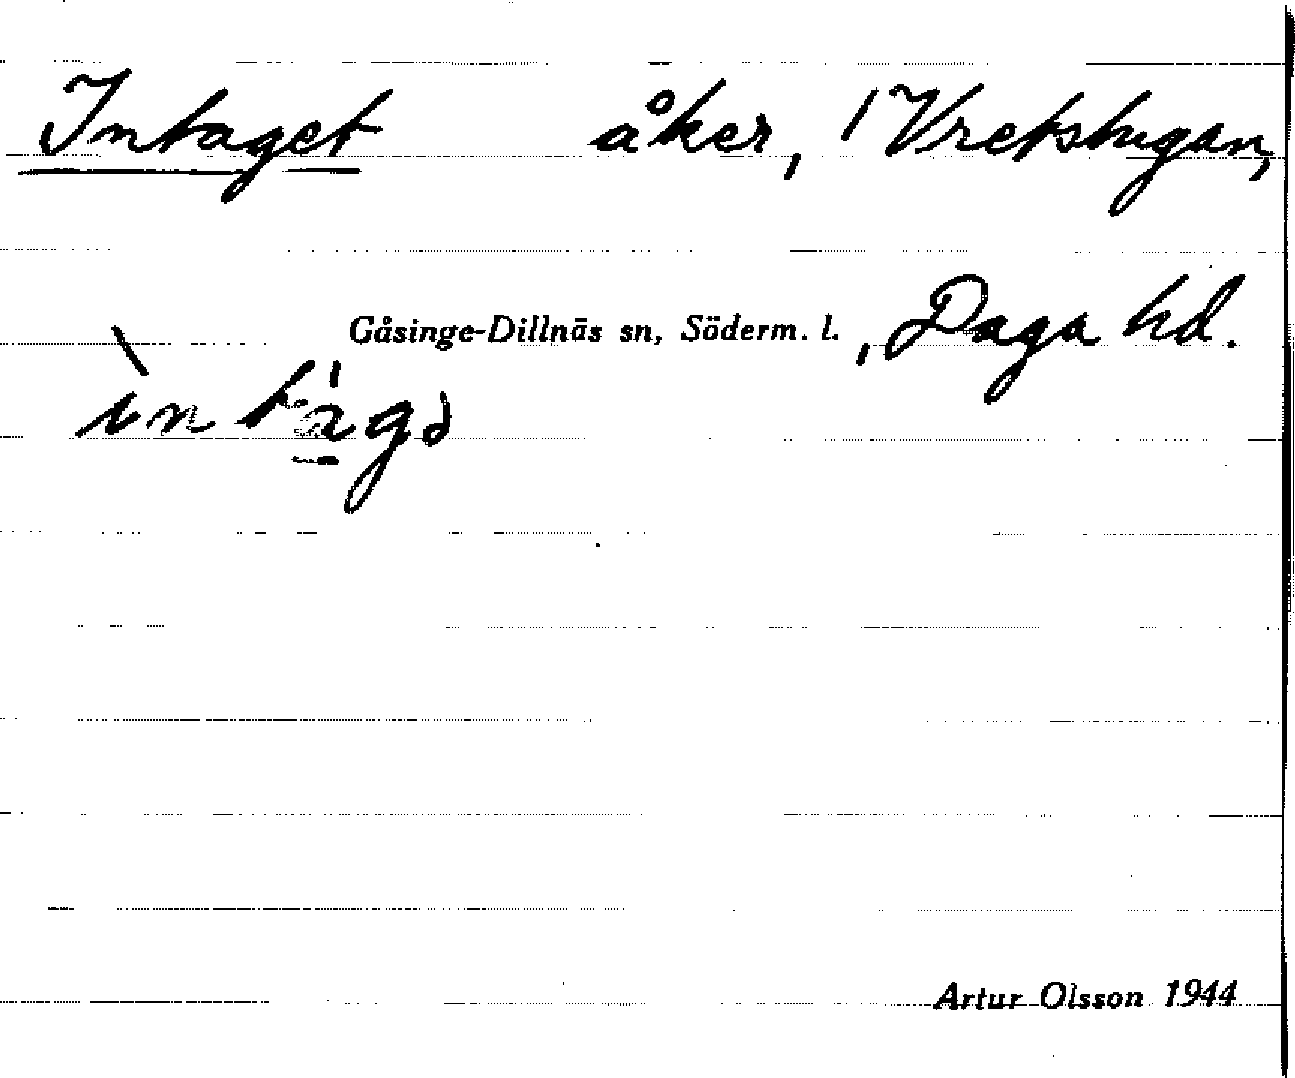 Intaget åker, / Vretstugan,
Gåsinge-Dillnäs sn, Söderm. l., Daga hd.
ìn tágə
Artur Olsson 1944